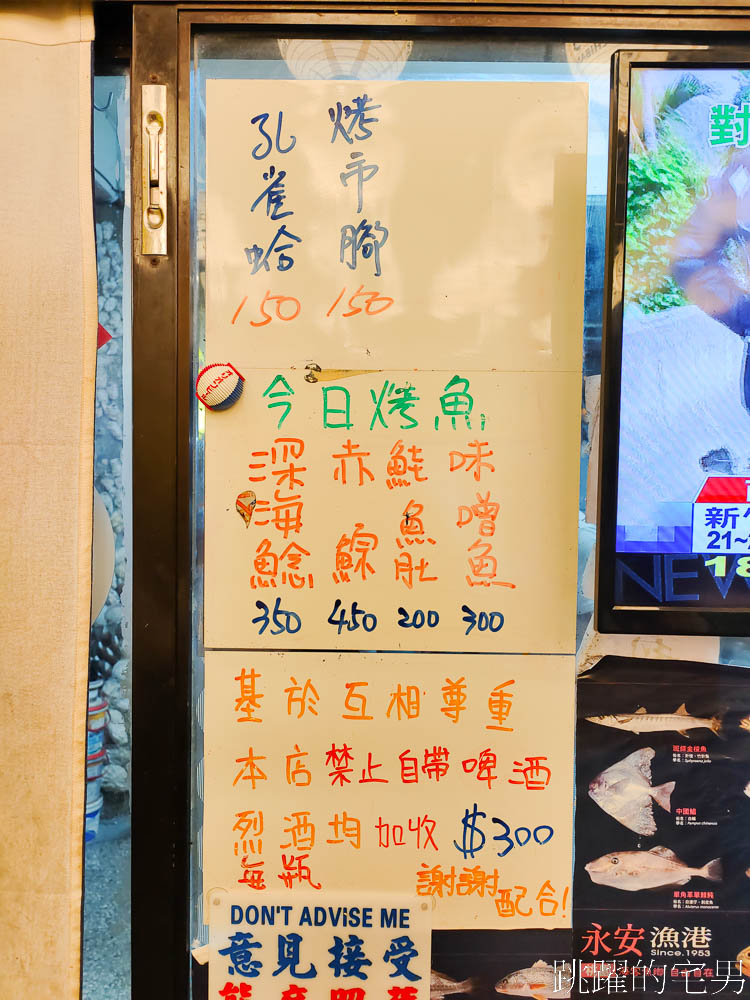 孔雀蛤
150
烤中腳
150
今日烤魚
深海鯰
350
赤鯮
450
鮭魚肚
200
味噌魚
300
基於互相尊重
本店禁止自帶啤酒
烈酒均加收$300
每瓶
謝謝配合!
DON'T ADViSE ME
意見接受
對
新
21~
NEW
18
斑條金梭魚
中國鯧
單角革單棘魨
永安漁港
Since.1953
跳躍的宅男